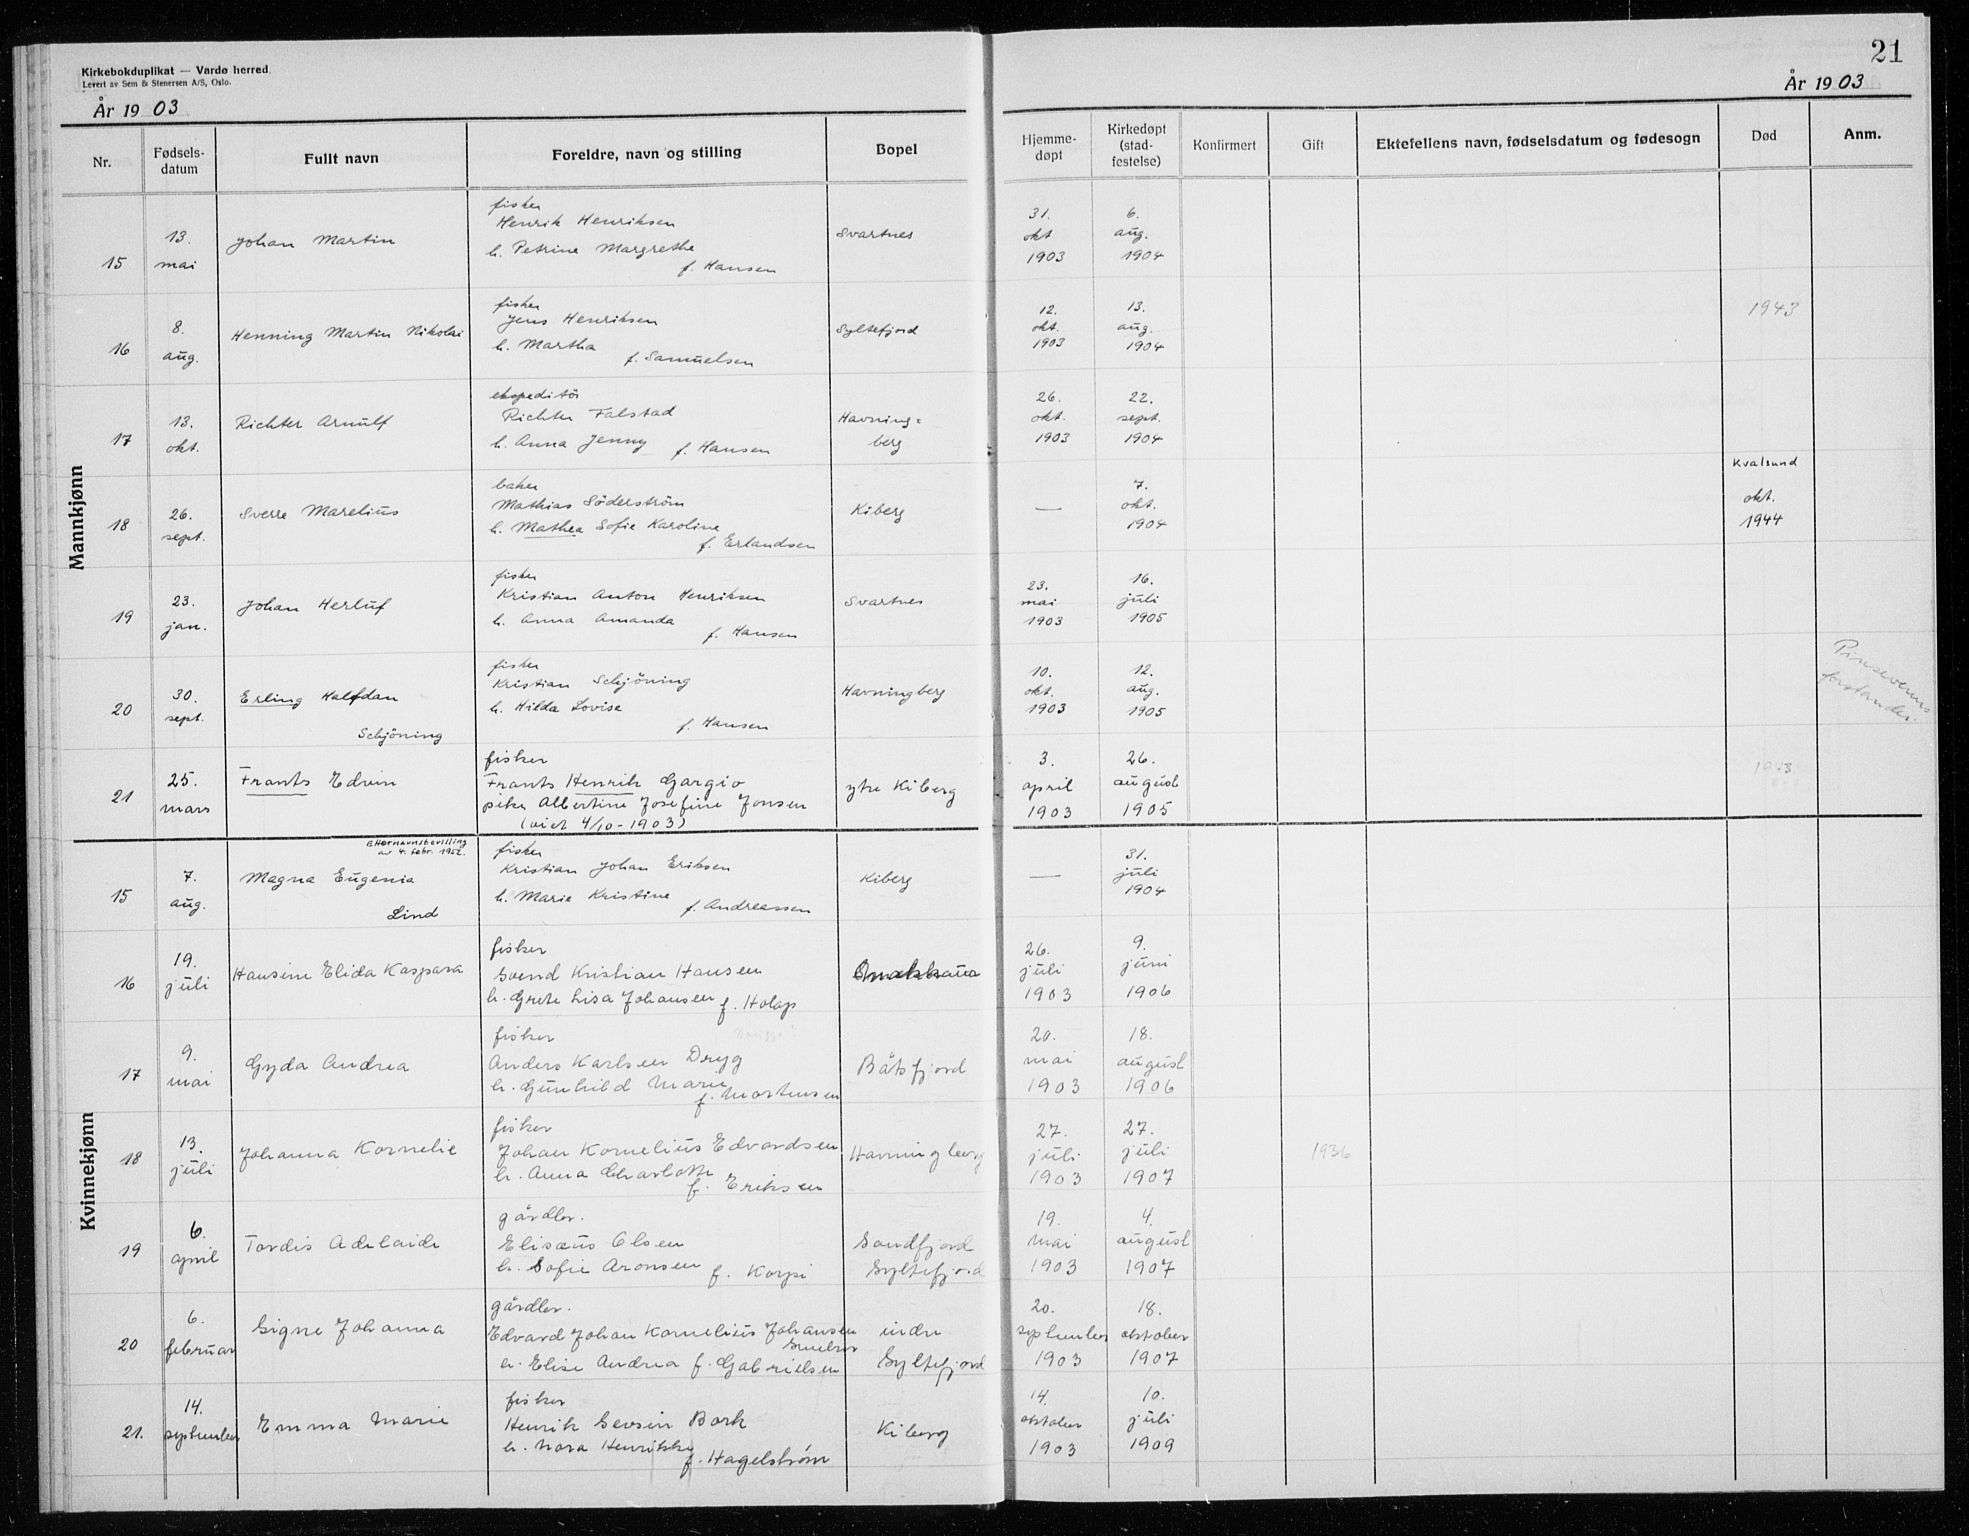 Kirkebokduplikat — Vardø herred.
Levert av Sem & Stenersen A/S, Oslo.
År 1903
21
År 1903
Nr. Fødsels-datum Fullt navn Foreldre, navn og stilling Bopel Hjemme-døpt Kirkedøpt (stad-festelse) Konfirmert Gift Ektefellens navn, fødselsdatum og fødesogn Død Anm.
Mannkjønn
fisker
Henrik Henriksen
15 13. mai Johan Martin h. Petrine Margrethe Svartnes 31. okt 1903 6. aug. 1904
f. Hansen
fisker
Jens Henriksen
16 8. aug. Henning Martin Nikolai h. Martha Syltefjord 12. okt. 1903 13. aug. 1904 1943
f. Samuelsen
ekspeditör
Richter Falstad
17 13. okt. Richter Arnulf h. Anna Jenny f. Hansen Havning=berg 26. okt. 1903 22. sept. 1904
baker
Mathias Söderström
18 26. sept. Sverre Marelius h. Mathea Sofie Karoline Kiberg — 7. okt. 1904 Kvalsund okt. 1944
f. Erlandsen
fisker
Kristian Anton Henriksen
19 23. jan. Johan Herluf h. Anna Amanda Svartnes 23. mai 1903 16. juli 1905
f. Hansen
fisker
Kristian Schjöning
20 30. sept. Erling Halfdan h. Hilda Lovise Havningberg 10. okt. 1903 12. aug. 1905 Pinsevenns forstander.
Schjöning f. Hansen
fisker
Frants Henrik Gargio
21 25. mars Frants Edvin pike Albertine Josefine Jonsen ytre Kiberg 3. april 1903 26. august 1905 1943
(viet 4/10-1903)
Kvinnekjønn
Etternavnsbevilling
av 4. febr. 1952.
fisker
Kristian Johan Eriksen
15 7. aug. Magna Eugenia h. Marie Kristine Kiberg — 31. juli 1904
Lind f. Andreassen
fisker
Svend Kristian Hansen
16 19. juli Hansine Elida Kaspara h. Grete Lisa Johansen f. Holap 26. juli 1903 9. juni 1906
fisker
Anders Karlsen Dryg
17 9. mai Gyda Andrea h. Gunhild Marie Båtsfjord 20. mai 1903 18. august 1906
f. Mortensen
fisker
Johan Kornelius Edvardsen
18 13. juli Johanna Kornelie h. Anna Charlotte Havningberg 27. juli 1903 27. juli 1907 1936
f. Eriksen
gårdbr.
Elisæus Olsen
19 6. april Tordis Adelaide h. Sofie Aronsen f. Korpi Sandfjord Syltefjord 19. mai 1903 4. august 1907
gårdbr.
Edvard Johan Kornelius Johansen
20 6. februar Signe Johanna h. Elise Andrea f. Gabrielsen indre Syltefjord 20. september 1903 18. oktober 1907
fisker
Henrik Bork
21. 14. september Emma Marie h. Nora Henrikke Kiberg 14. oktober 1903 10. juli 1909
f. Hagelstrøm